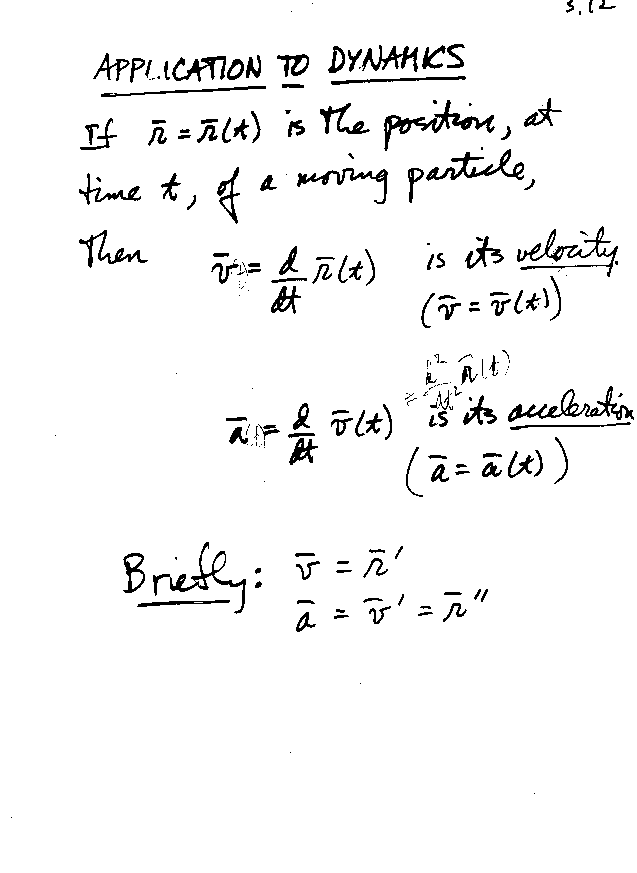 3.12
APPLICATION TO DYNAMICS
If r̄ = r̄(t) is the position, at
time t, of a moving particle,
Then v̄(t) = d/dt r̄(t) is its velocity.
(v̄ = v̄(t))
= d²/dt² r̄(t)
ā(t) = d/dt v̄(t) is its acceleration
(ā = ā(t))
Briefly: v̄ = r̄′
ā = v̄′ = r̄″